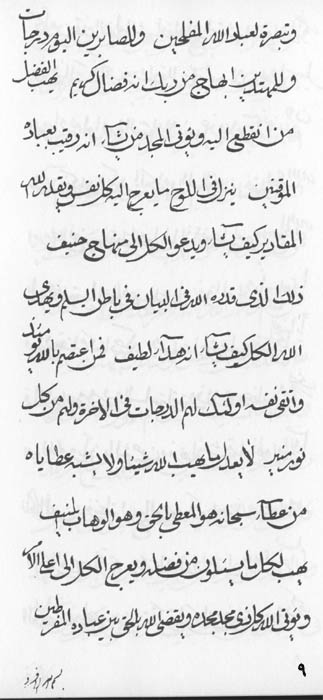 وتبصرة لعباد الله المفلحين وللصابرين اليوم درجات
وللمهتدين ابهاج من ربك انه فضال كريم يهب الفضل
من انقطع اليه ويؤتي المجد من يشاء انه رقيب بعباده
الموقنين ينزل في اللوح ما يعرج اليه كل نفس ويقدر الله
المقادير كيف يشاء ويدعو الكل الى منهاج حنيف
ذلك الذي قدره الله في البيان في باطن السر ويهدي
الله الكل كيف يشاء انه لطيف لمن اعتصم بالله يومئذ
واتقى نفسه اولئك لهم الدرجات في الاخرة ولهم من كل
نور منير لا يعدل ما يهب الله شيئا ولا يشبه عطاياه
من عطاء سبحانه هو المعطي بالحق وهو الوهاب المنيف
يهب لكل ما يسئلون من فضله ويعرج الكل الى اعلى
ويؤتي الله كل ذي مجد مجده ويقضي الله بالحق بين عباده المفرطين
٩